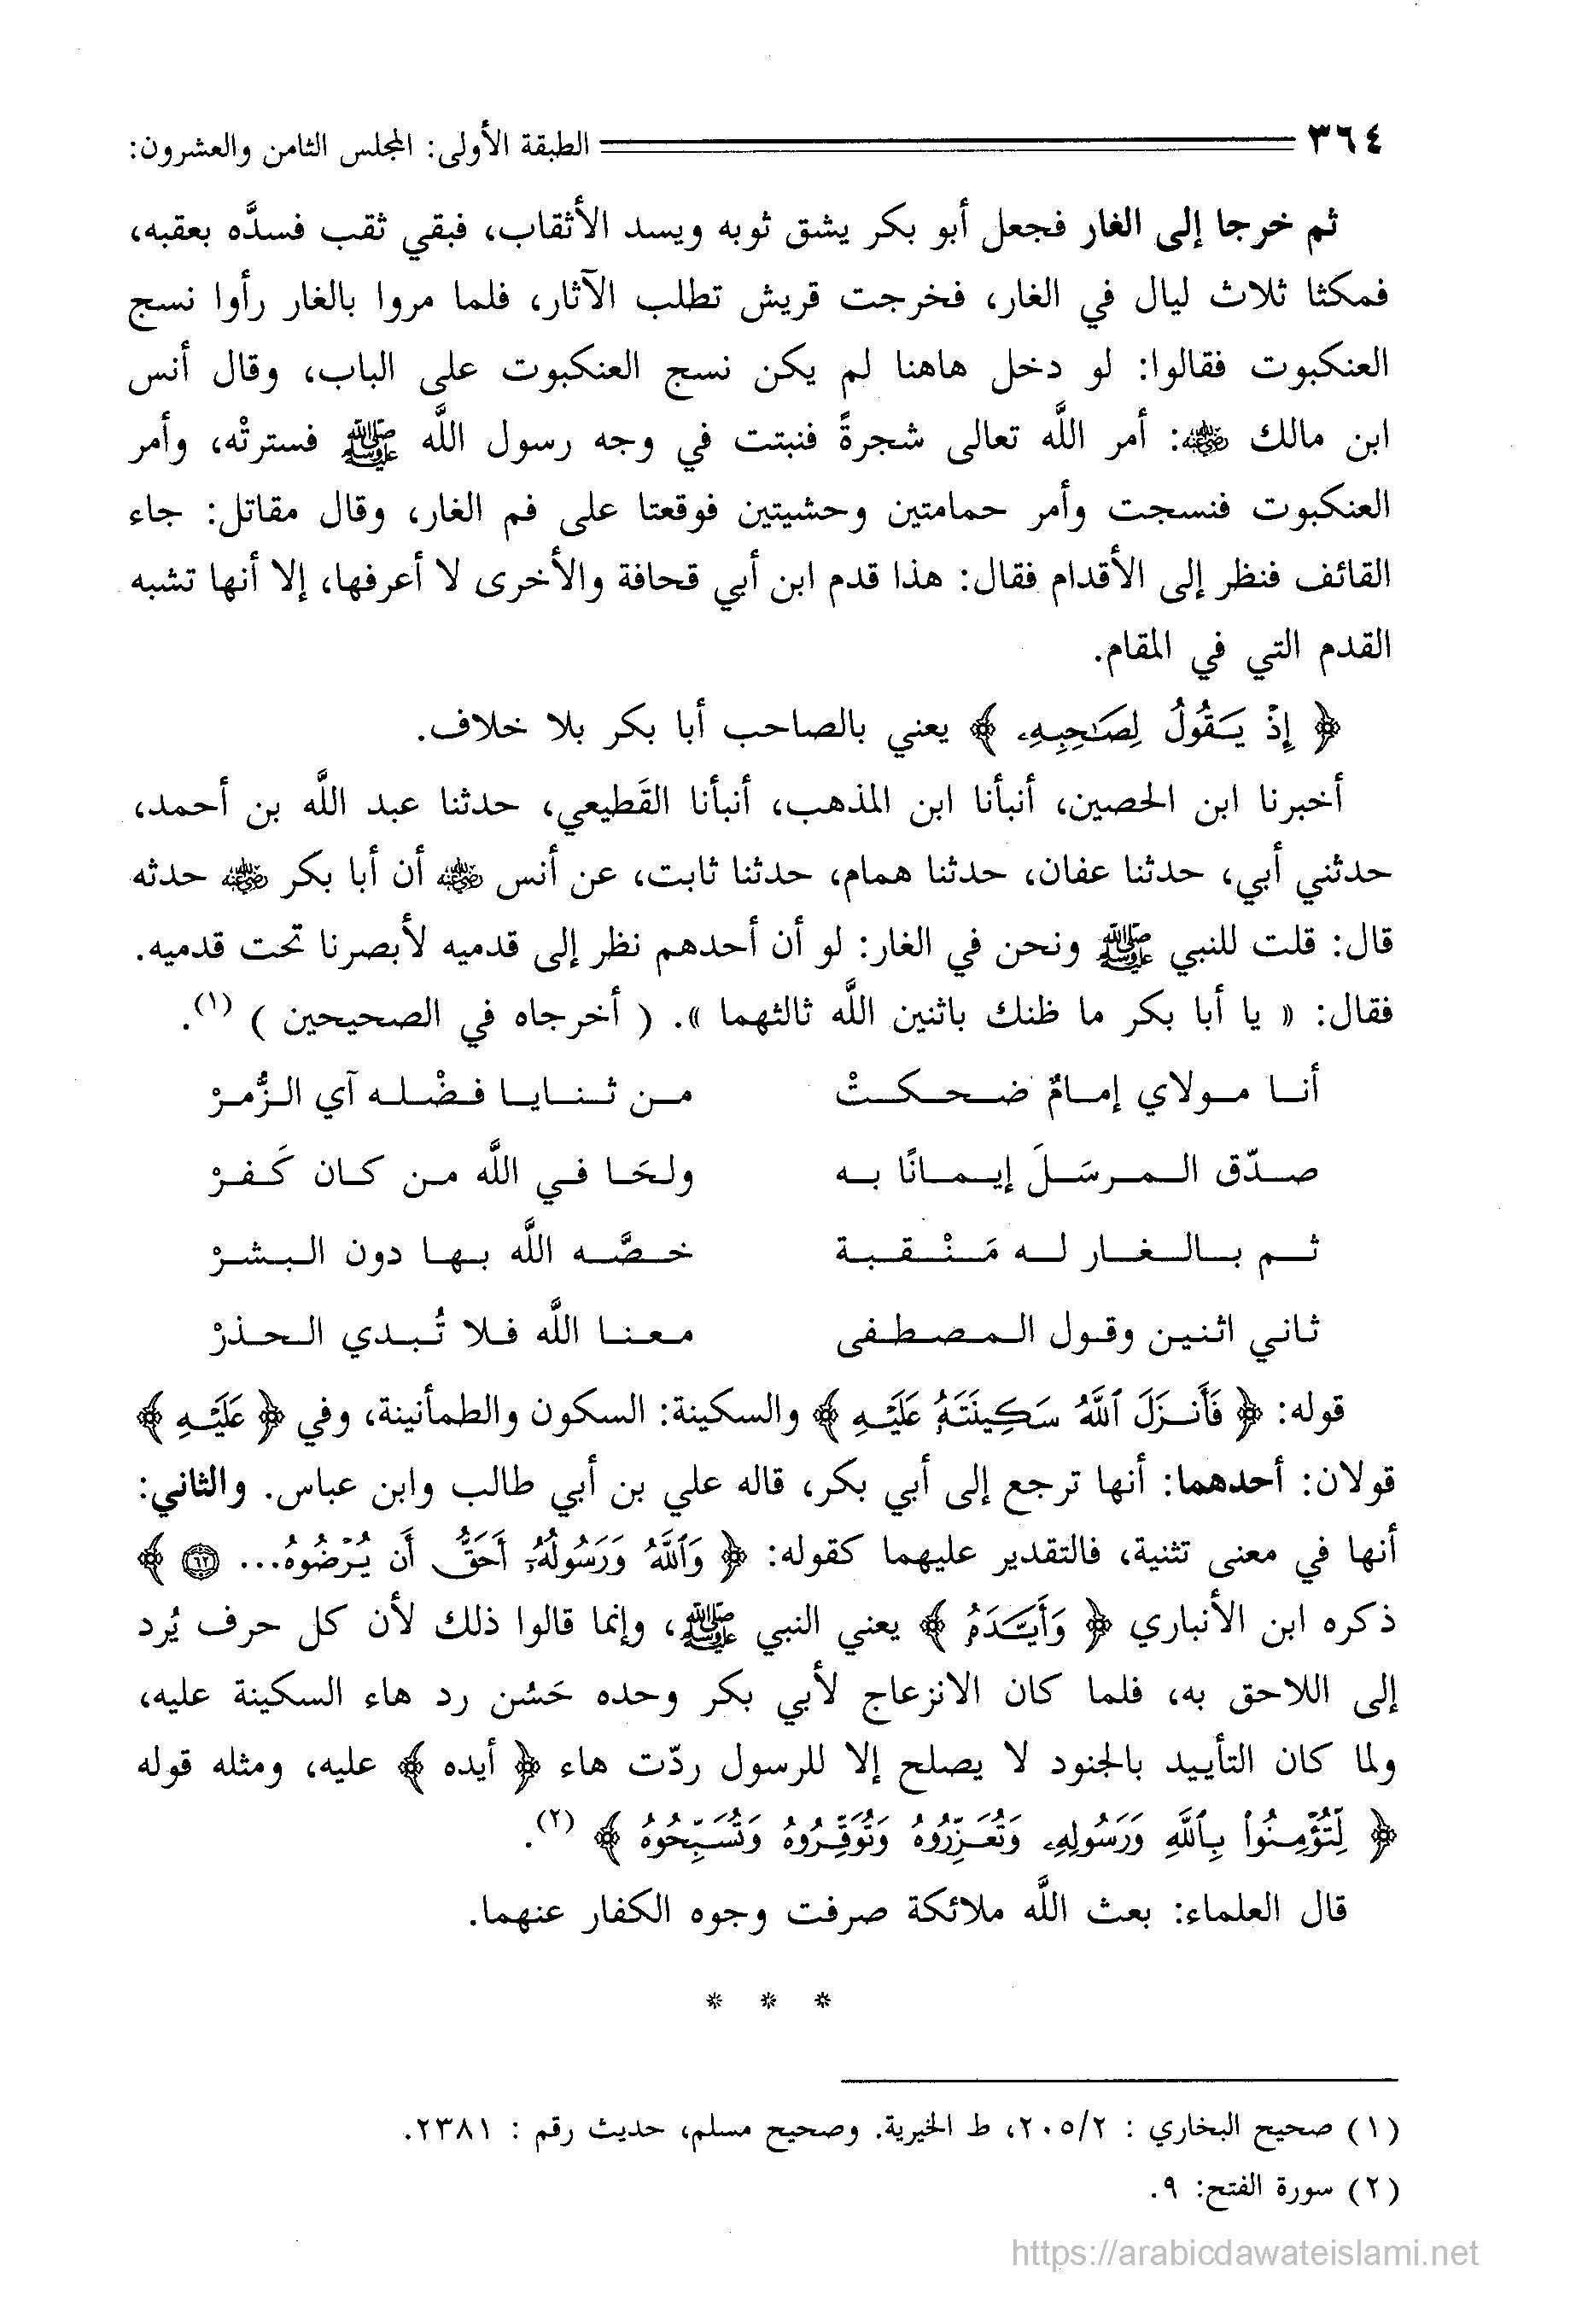 ٣٦٤ الطبقة الأولى: المجلس الثامن والعشرون:
ثم خرجا إلى الغار فجعل أبو بكر يشق ثوبه ويسد الأثقاب، فبقي ثقب فسدَّه بعقبه،
فمكثا ثلاث ليال في الغار، فخرجت قريش تطلب الآثار، فلما مروا بالغار رأوا نسج
العنكبوت فقالوا: لو دخل هاهنا لم يكن نسج العنكبوت على الباب، وقال أنس
ابن مالك رضي الله عنه: أمر اللَّه تعالى شجرةً فنبتت في وجه رسول اللَّه ﷺ فسترتْه، وأمر
العنكبوت فنسجت وأمر حمامتين وحشيتين فوقعتا على فم الغار، وقال مقاتل: جاء
القائف فنظر إلى الأقدام فقال: هذا قدم ابن أبي قحافة والأخرى لا أعرفها، إلا أنها تشبه
القدم التي في المقام.
﴿ إِذْ يَقُولُ لِصَٰحِبِهِۦ ﴾ يعني بالصاحب أبا بكر بلا خلاف.
أخبرنا ابن الحصين، أنبأنا ابن المذهب، أنبأنا القَطيعي، حدثنا عبد اللَّه بن أحمد،
حدثني أبي، حدثنا عفان، حدثنا همام، حدثنا ثابت، عن أنس رضي الله عنه أن أبا بكر رضي الله عنه حدثه
قال: قلت للنبي ﷺ ونحن في الغار: لو أن أحدهم نظر إلى قدميه لأبصرنا تحت قدميه.
فقال: « يا أبا بكر ما ظنك باثنين اللَّه ثالثهما ». ( أخرجاه في الصحيحين ) (١).
أنا مولاي إمامٌ ضحكتْ من ثنايا فضْله آي الزُّمرْ
صدّق المرسَلَ إيمانًا به ولحَا في اللَّه من كان كَفرْ
ثم بالغار له مَنْقبة خصَّه اللَّه بها دون البشرْ
ثاني اثنين وقول المصطفى معنا اللَّه فلا تُبدي الحذرْ
قوله: ﴿ فَأَنزَلَ ٱللَّهُ سَكِينَتَهُۥ عَلَيْهِ ﴾ والسكينة: السكون والطمأنينة، وفي ﴿ عَلَيْهِ ﴾
قولان: أحدهما: أنها ترجع إلى أبي بكر، قاله علي بن أبي طالب وابن عباس. والثاني:
أنها في معنى تثنية، فالتقدير عليهما كقوله: ﴿ وَٱللَّهُ وَرَسُولُهُۥٓ أَحَقُّ أَن يُرْضُوهُ... ٦٢ ﴾
ذكره ابن الأنباري ﴿ وَأَيَّدَهُۥ ﴾ يعني النبي ﷺ، وإنما قالوا ذلك لأن كل حرف يُرد
إلى اللاحق به، فلما كان الانزعاج لأبي بكر وحده حَسُن رد هاء السكينة عليه،
ولما كان التأييد بالجنود لا يصلح إلا للرسول ردّت هاء ﴿ أيده ﴾ عليه، ومثله قوله
﴿ لِّتُؤْمِنُوا۟ بِٱللَّهِ وَرَسُولِهِۦ وَتُعَزِّرُوهُ وَتُوَقِّرُوهُ وَتُسَبِّحُوهُ ﴾ (٢).
قال العلماء: بعث اللَّه ملائكة صرفت وجوه الكفار عنهما.
* * *
(١) صحيح البخاري : ٢٠٥/٢، ط الخيرية. وصحيح مسلم، حديث رقم : ٢٣٨١.
(٢) سورة الفتح: ٩.
https://arabicdawateislami.net